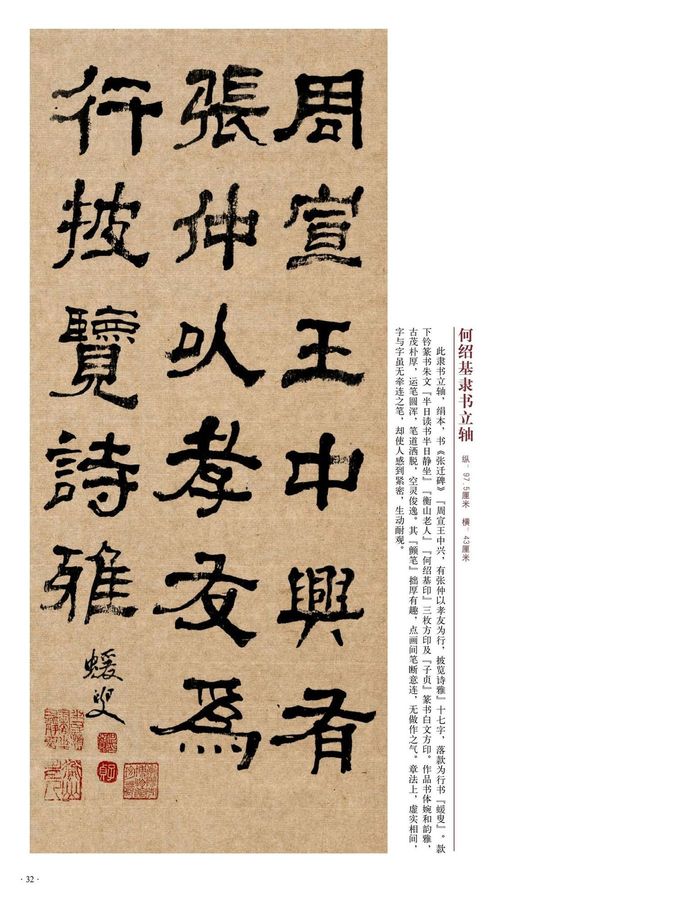 周宣王中興有
張仲以孝友為
行披覽詩雅
蝯叟
何绍基隶书立轴
纵：97.5厘米 横：43厘米
此隶书立轴，绢本，书《张迁碑》『周宣王中兴，有张仲以孝友为行，披览诗雅』十七字，落款为行书『蝯叟』。款
下钤篆书朱文『半日读书半日静坐』『衡山老人』『何绍基印』三枚方印及『子贞』篆书白文方印。作品书体婉和韵雅，
古茂朴厚，运笔圆浑，笔道洒脱，空灵俊逸。其『颤笔』拙厚有趣，点画间笔断意连，无做作之气。章法上，虚实相间，
字与字虽无牵连之笔，却使人感到紧密，生动耐观。
· 32 ·